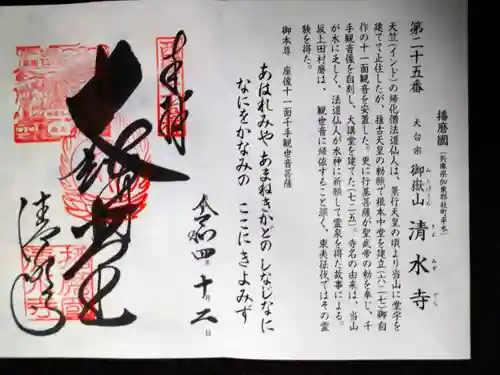 第二十五番
播磨國(兵庫県加東郡社町平木)
天台宗 御嶽山 清水寺
みたけさん きよ みず でら
天竺(インド)の帰化僧法道仙人は、景行天皇の頃より当山に堂宇を
建てて止住したが、推古天皇の勅願で根本中堂を建立(六二七)御自
作の十一面観音を安置した。更に行基菩薩が聖武帝の勅を奉じ、千
手観音像を自刻し、大講堂を建てた(七二五)。寺名の由来は、当山
が水に乏しく、法道仙人が水神に祈願して霊泉を得た故事による。
坂上田村麿は、観世音に帰依すること深く、東夷征伐ではその霊
験を得た。
御本尊 座像十一面千手観世音菩薩
あはれみや あまねきかどの しなじなに
なにをかなみの ここにきよみず
令和四年十月二日
奉拝
大講堂
清水寺